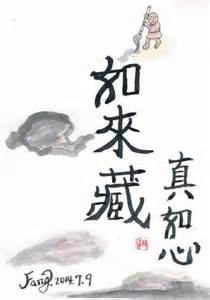 如來藏
真如心
Fang. 2014.7.9